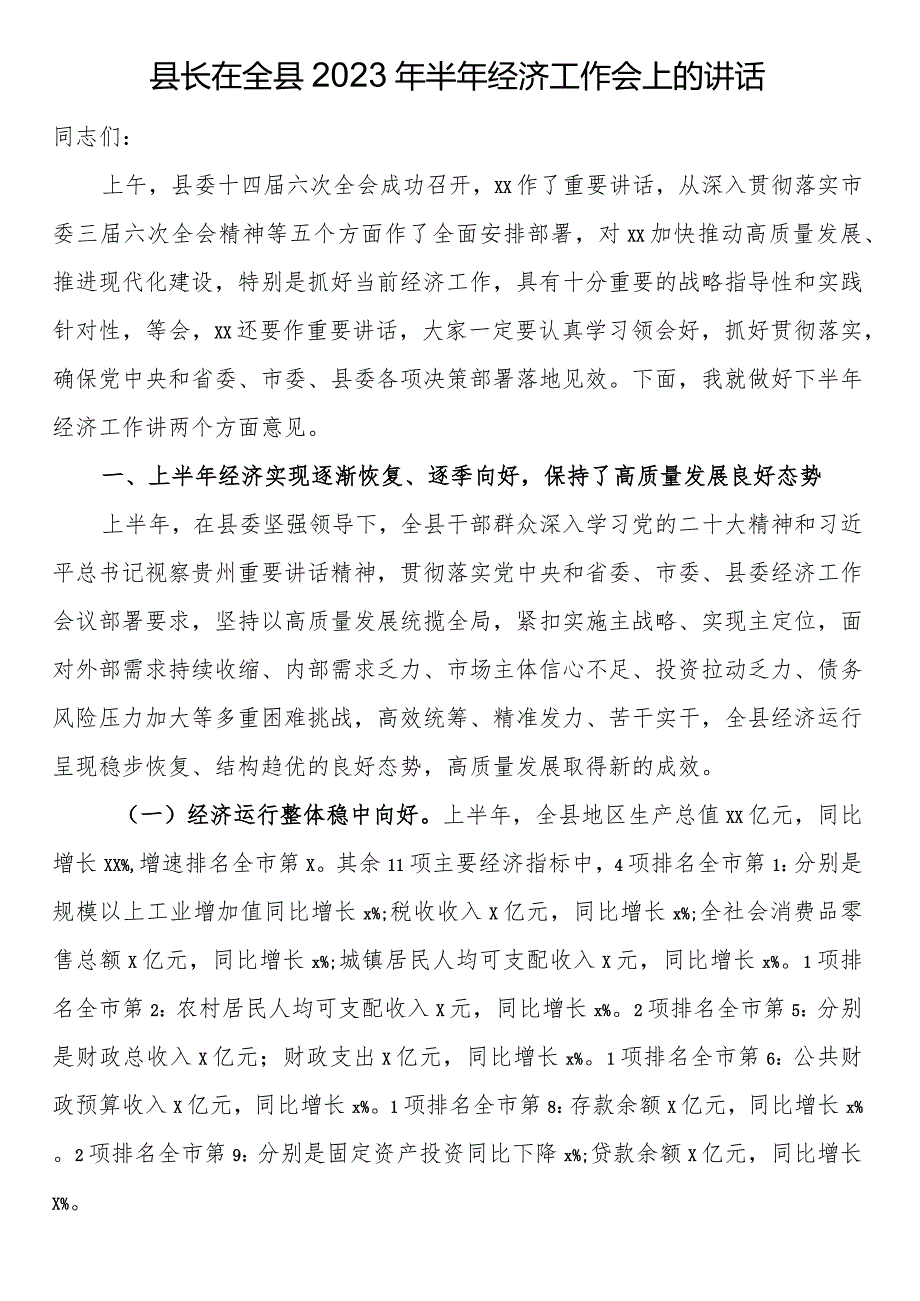 县长在全县2023年半年经济工作会上的讲话
同志们：
上午，县委十四届六次全会成功召开，xx作了重要讲话，从深入贯彻落实市
委三届六次全会精神等五个方面作了全面安排部署，对xx加快推动高质量发展、
推进现代化建设，特别是抓好当前经济工作，具有十分重要的战略指导性和实践
针对性，等会，xx还要作重要讲话，大家一定要认真学习领会好，抓好贯彻落实，
确保党中央和省委、市委、县委各项决策部署落地见效。下面，我就做好下半年
经济工作讲两个方面意见。
一、上半年经济实现逐渐恢复、逐季向好，保持了高质量发展良好态势
上半年，在县委坚强领导下，全县干部群众深入学习党的二十大精神和习近
平总书记视察贵州重要讲话精神，贯彻落实党中央和省委、市委、县委经济工作
会议部署要求，坚持以高质量发展统揽全局，紧扣实施主战略、实现主定位，面
对外部需求持续收缩、内部需求乏力、市场主体信心不足、投资拉动乏力、债务
风险压力加大等多重困难挑战，高效统筹、精准发力、苦干实干，全县经济运行
呈现稳步恢复、结构趋优的良好态势，高质量发展取得新的成效。
（一）经济运行整体稳中向好。上半年，全县地区生产总值xx亿元，同比
增长XX%,增速排名全市第X。其余11项主要经济指标中，4项排名全市第1：分别是
规模以上工业增加值同比增长x%;税收收入X亿元，同比增长x%;全社会消费品零
售总额X亿元，同比增长x%;城镇居民人均可支配收入X元，同比增长x%。1项排
名全市第2：农村居民人均可支配收入X元，同比增长x%。2项排名全市第5：分别
是财政总收入X亿元；财政支出X亿元，同比增长x%。1项排名全市第6：公共财
政预算收入X亿元，同比增长x%。1项排名全市第8：存款余额X亿元，同比增长x%
。2项排名全市第9：分别是固定资产投资同比下降x%;贷款余额X亿元，同比增长
X%。